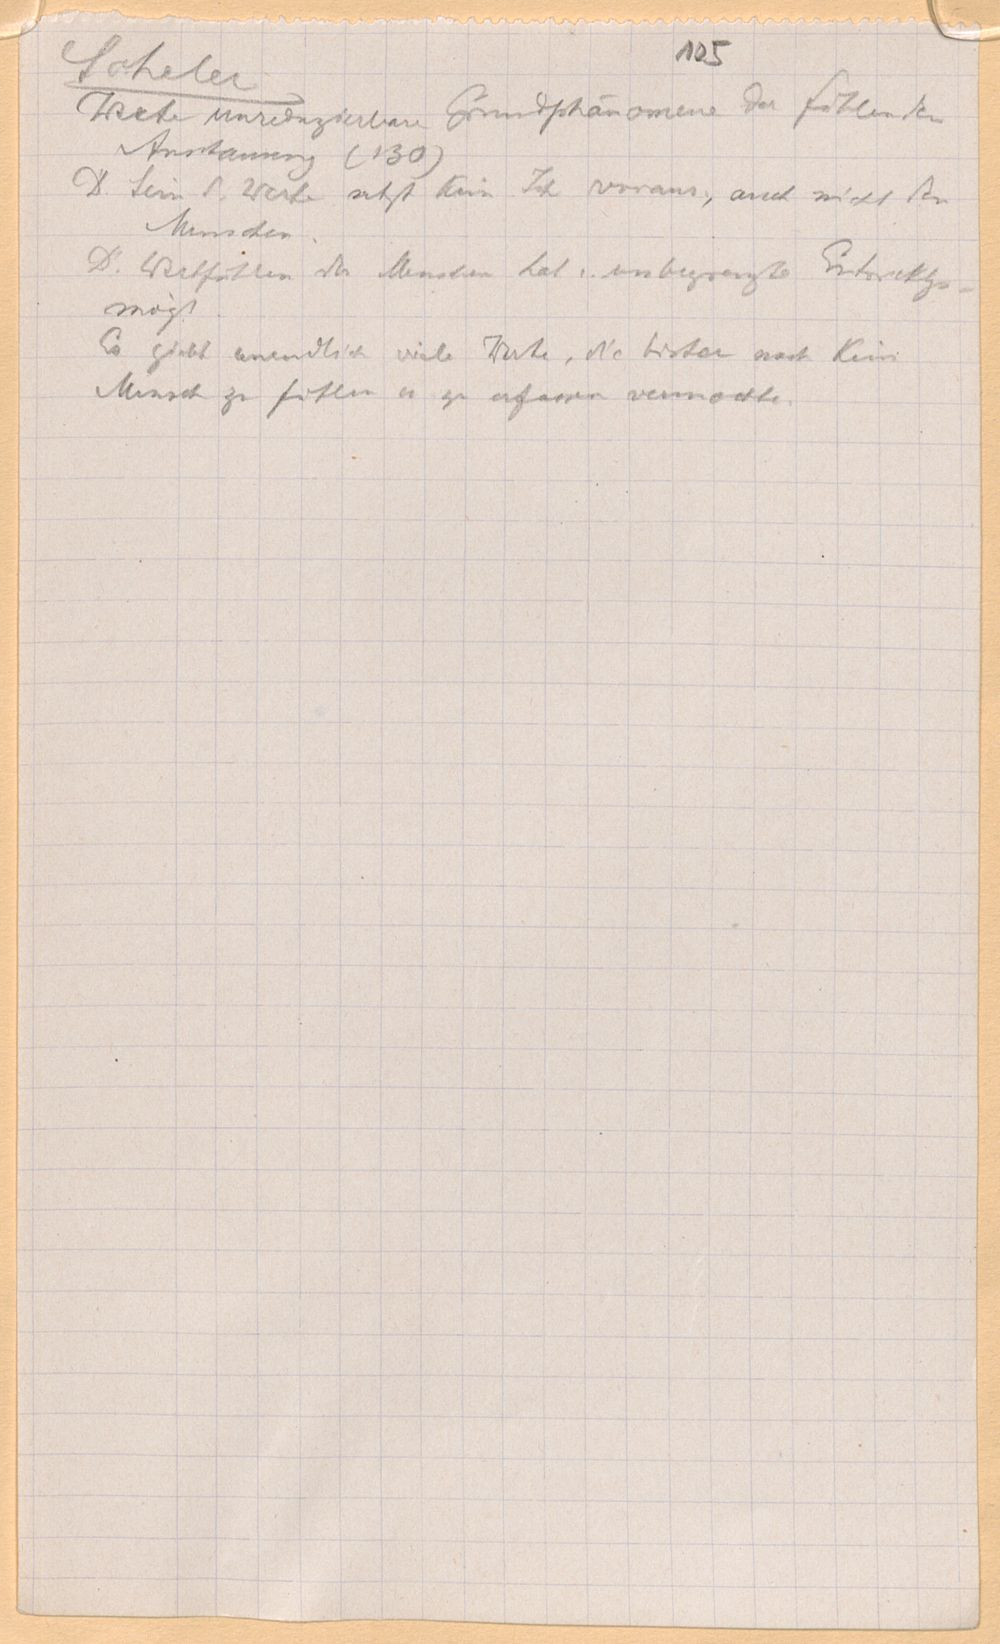 105
Scheler
Werte unreduzierbare Grundphänomene der fühlenden
Anschauung (130)
D. Sein d. Werte setzt kein Ich voraus, auch nicht den
Menschen.
D. Wertfühlen des Menschen hat e. unbegrenzte Entwicklgs-
mögl.
Es giebt unendlich viele Werte, die bisher noch kein
Mensch zu fühlen u zu erfassen vermochte.